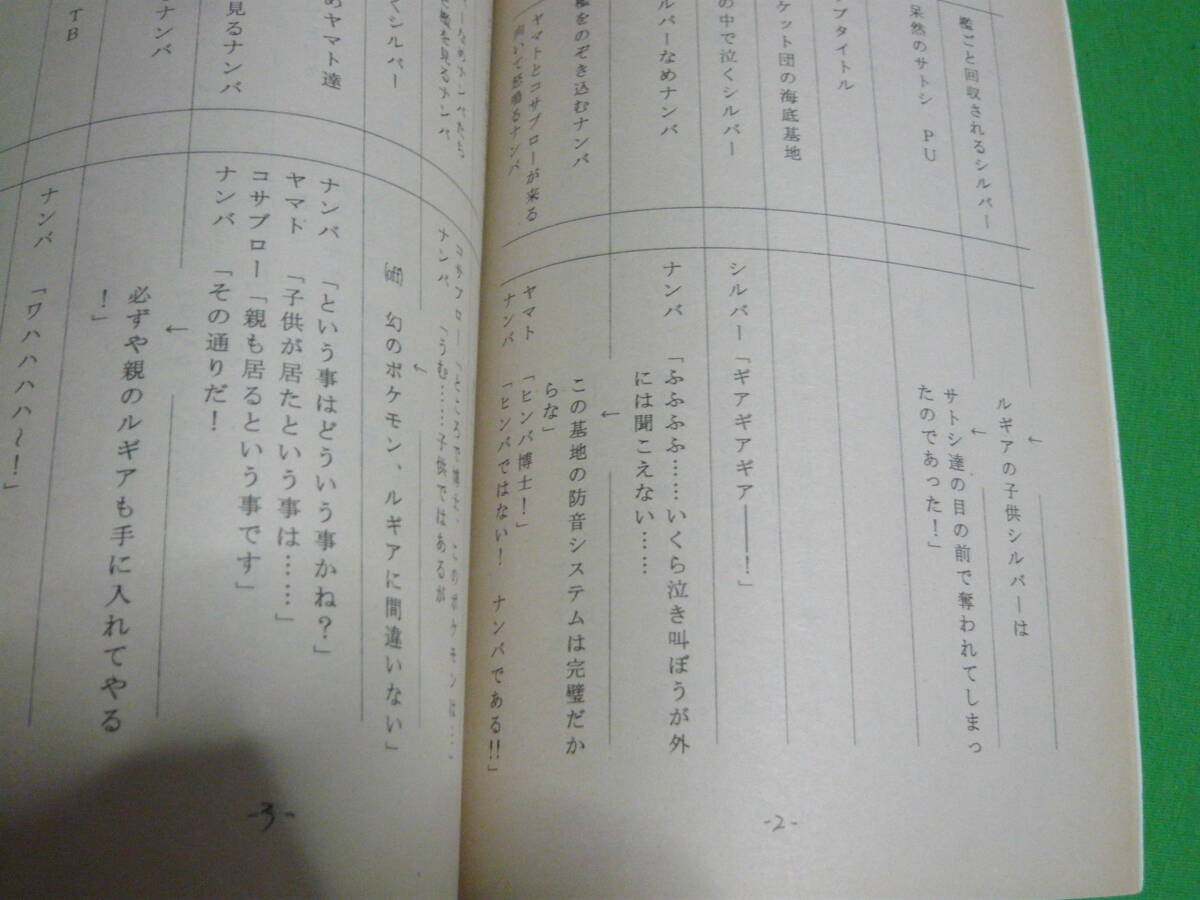 檻ごと回収されるシルバー
呆然のサトシ　PU
ブタイトル
ケット団の海底基地
の中で泣くシルバー
ルバーなめナンバ
檻をのぞき込むナンバ
ヤマトとコサブローが来る
向いて怒鳴るナンバ
←
ルギアの子供シルバーは
←
サトシ達の目の前で奪われてしまっ
たのであった！」
シルバー「ギアギアギア――！」
ナンバ　「ふふふふ……いくら泣き叫ぼうが外
には聞こえない……
←
この基地の防音システムは完璧だか
らな」
ヤマト　「ヒンバ博士！」
ナンバ　「ヒンバではない！　ナンバである!!」
-2-
くシルバー
めヤマト達
見るナンバ
ナンバ
TB
コサブロー「ところで博士、このポケモンは…」
ナンバ　「うむ……子供ではあるが
←
(off)　幻のポケモン、ルギアに間違いない」
ナンバ　「という事はどういう事かね？」
ヤマド　「子供が居たという事は……」
コサブロー「親も居るという事です」
ナンバ　「その通りだ！
←
必ずや親のルギアも手に入れてやる
！」
ナンバ　「ワハハハハ～！」
-3-